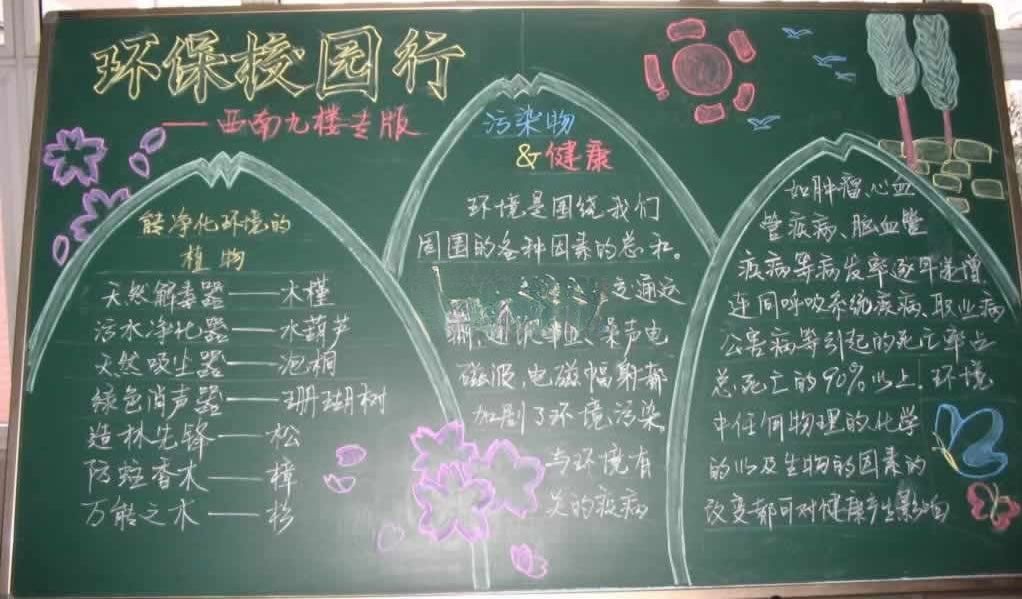 环保校园行
——西南九楼专版
能净化环境的
植物
天然解毒器——木槿
污水净化器——水葫芦
天然吸尘器——泡桐
绿色消声器——珊瑚树
造林先锋——松
防蛀香木——樟
万能之木——杉
污染物
&健康
环境是围绕我们
周围的各种因素的总和。
交通运
输,通讯事业、噪声电
磁波,电磁幅射都
加剧了环境污染
与环境有
关的疾病
如肿瘤、心血
管疾病、脑血管
疾病等病发率逐年递增
连同呼吸系统疾病、职业病
公害病等引起的死亡率占
总死亡的90%以上.环境
中任何物理的化学
的以及生物的因素的
改变都可对健康产生影响